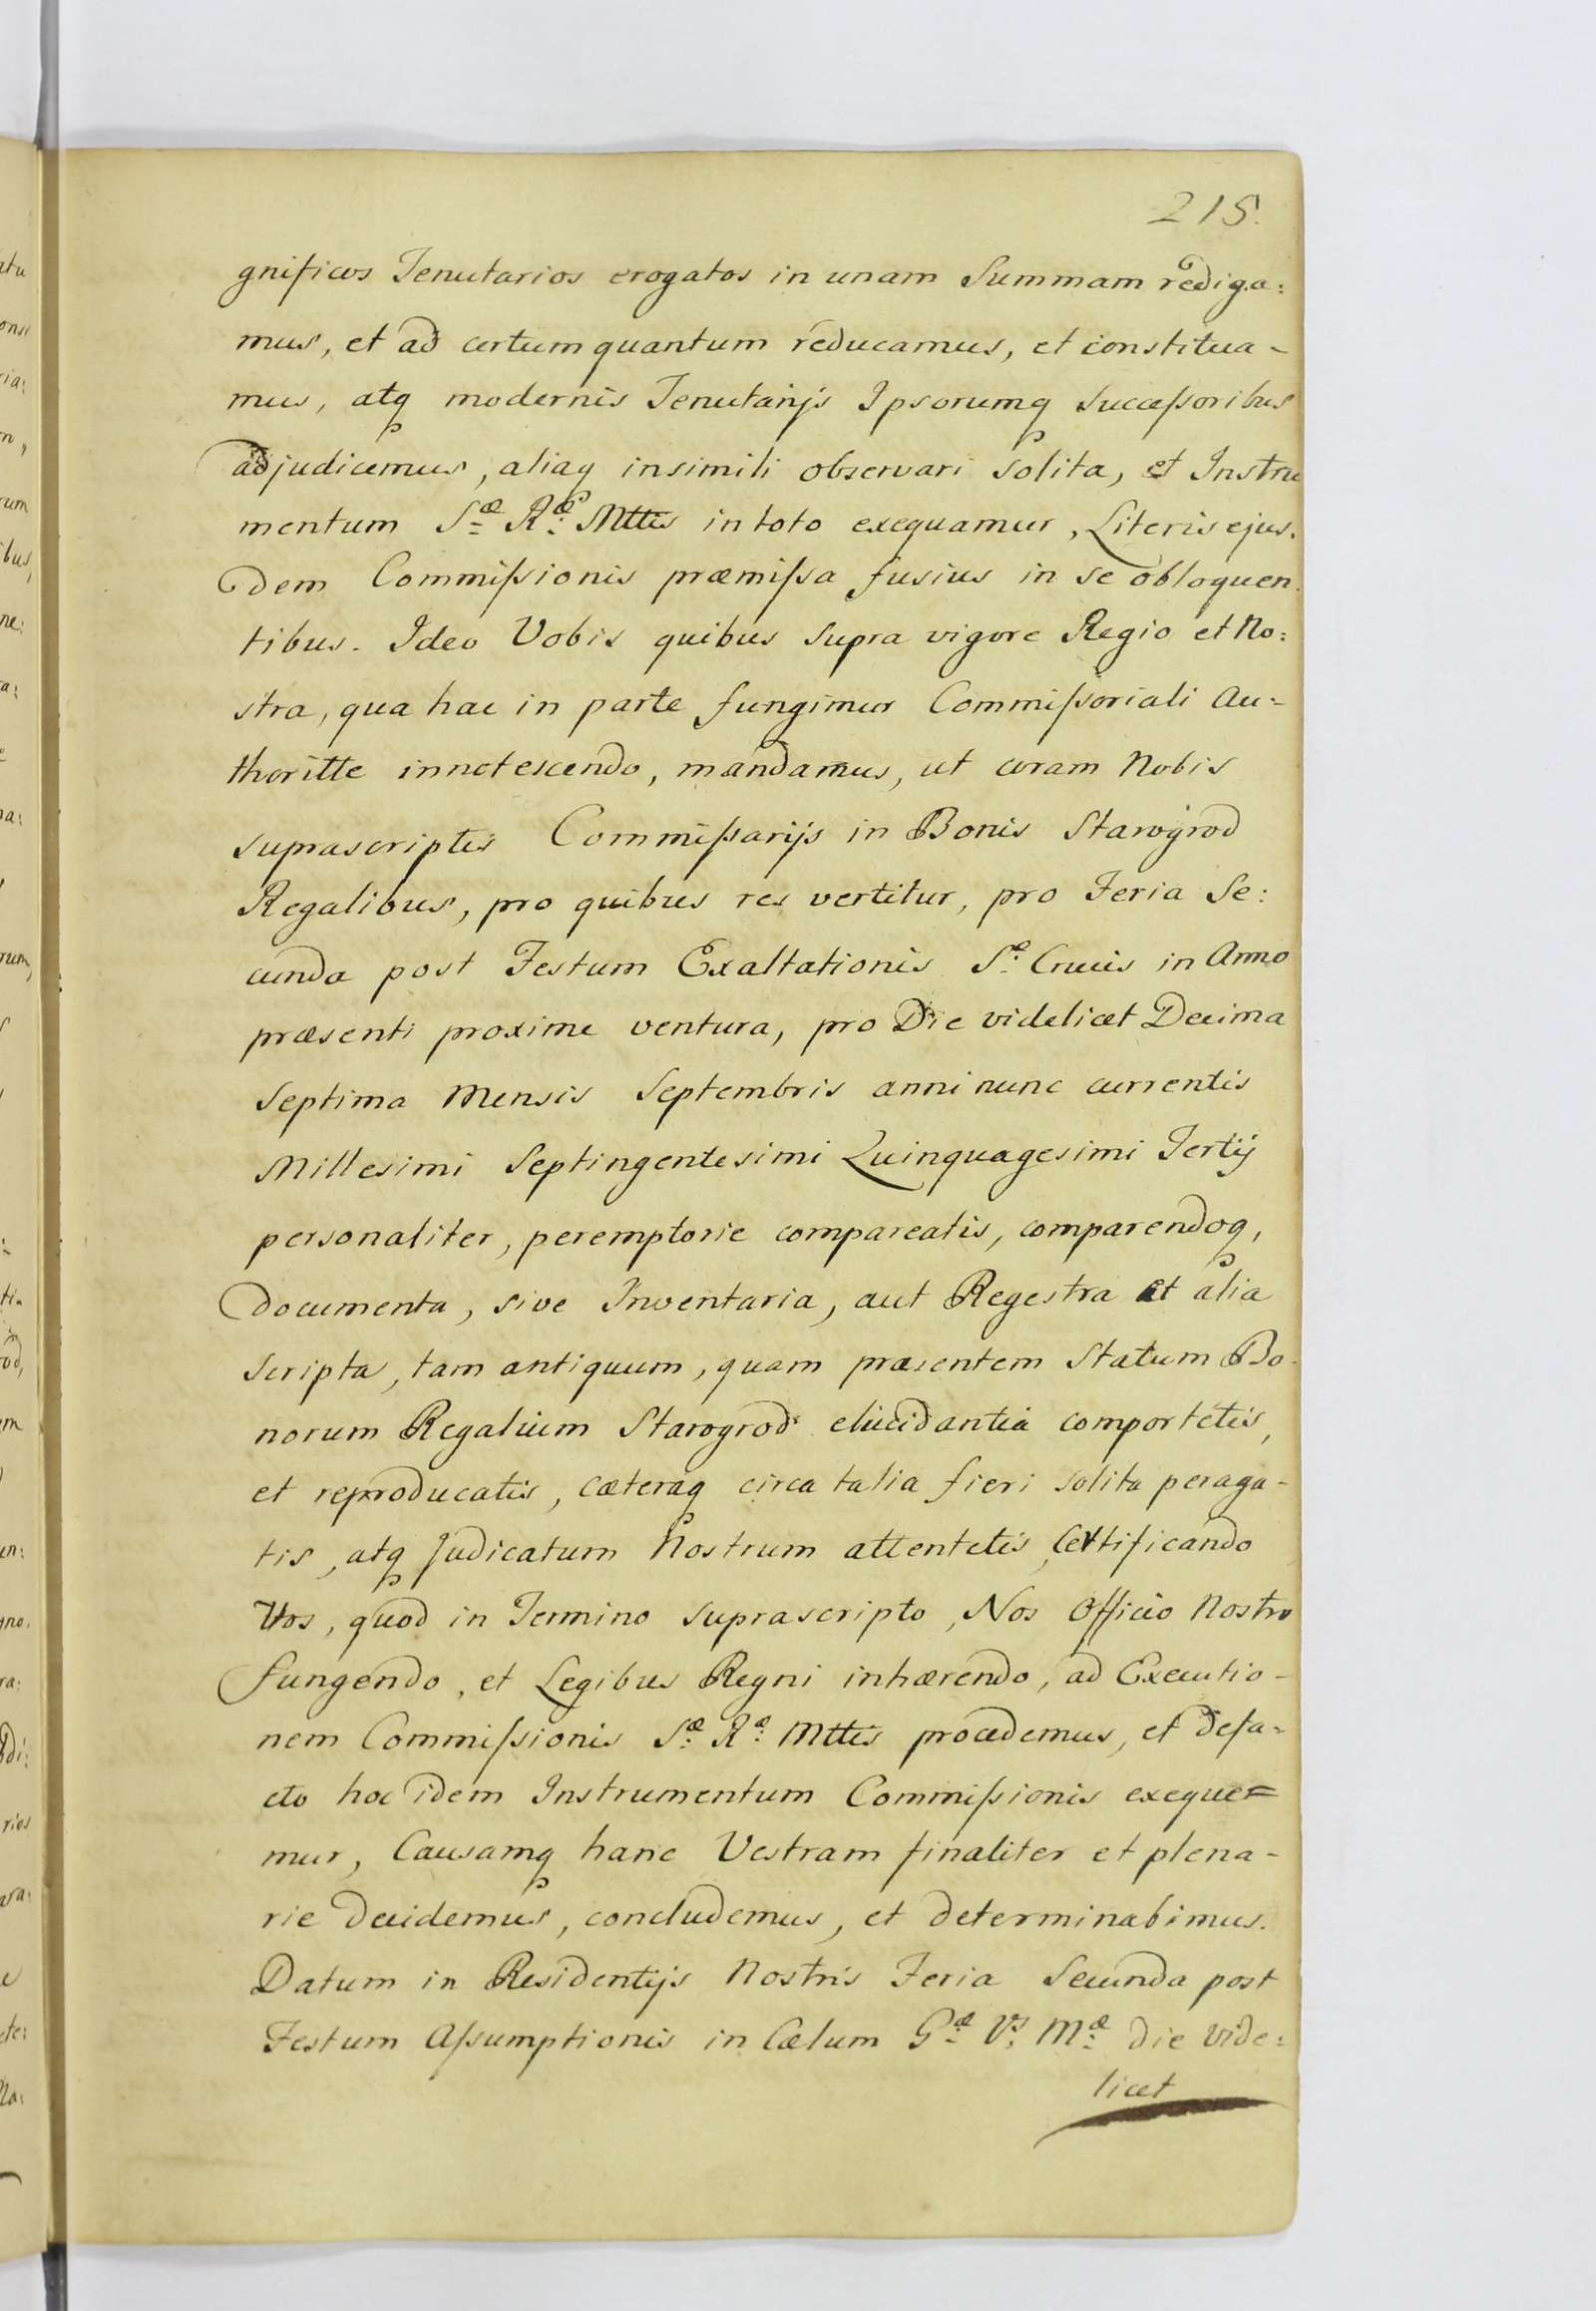 215.
gnificos Tenutarios erogatos in unam Summam rediga:
mus, et ad certum quantum reducamus, et constitua-
mus, atq modernis Tenutarijs Ipsorumq Succeſsoribus
adjudicemus, aliaq insimili observari solita, et Instru
mentum Sæ Ræ Mttis in toto exequamur, Literis ejus.
dem Commiſsionis præmiſsa fusius in se obloquen.
tibus. Ideo Vobis quibus supra vigore Regio et No:
stra, qua hac in parte fungimur Commiſsoriali Au-
thoritte innotescendo, mandamus, ut coram Nobis
suprascriptis Commiſsarijs in Bonis Starogrod
Regalibus, pro quibus res vertitur, pro Feria Se:
cunda post Festum Exaltationis Sæ Crucis in Anno
præsenti proxime ventura, pro Die videlicet Decima
Septima Mensis Septembris anni nunc currentis
Millesimi Septingentesimi Quinquagesimi Tertij
personaliter, peremptorie compareatis, comparendoq,
documenta, sive Inventaria, aut Regestra et alia
scripta, tam antiquum, quam præsentem Statum Bo-
norum Regalium Starogrod elucidantia comportetis,
et reproducatis, cæteraq circa talia fieri solita peraga-
tis, atq Judicatum Nostrum attentetis, Certificando
Vos, quod in Termino suprascripto, Nos Officio Nostro
fungendo, et Legibus Regni inhærendo, ad Executio-
nem Commiſsionis Sæ Ræ Mttis procedemus, et defa-
cto hoc idem Instrumentum Commiſsionis exeque=
mur, Causamq hanc Vestram finaliter et plena-
rie decidemus, concludemus, et determinabimus.
Datum in Residentijs Nostris Feria Secunda post
Festum Aſsumptionis in Cælum Gæ Vs Mæ die vide:
licet